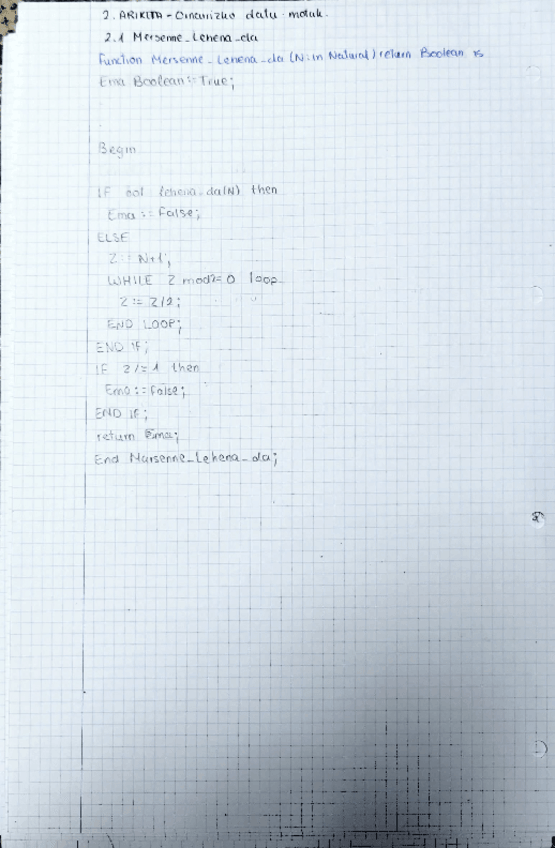 2. ARIKETA - Oinarrizko datu motak.
2.1 Mersenne_Lehena_da
Function Mersenne_Lehena_da (N: in Natural) return Boolean is
Ema Boolean:=True;
Begin
IF not lehena_da(N) then
Ema := False;
ELSE
Z:= N+1;
WHILE Z mod2=0 loop
Z:= Z/2;
END LOOP;
END IF;
IF Z/=1 then
Ema:=False;
END IF;
return Ema;
End Mersenne_Lehena_da;